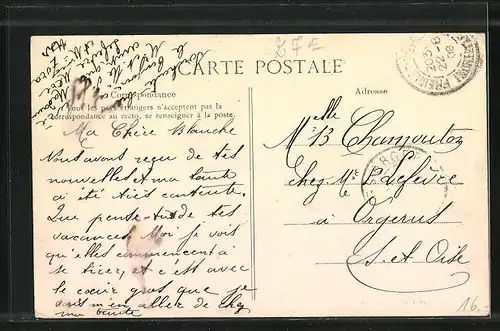 CARTE POSTALE
Correspondance
Tous les pays étrangers n'acceptent pas la
correspondance au recto, se renseigner à la poste.
Adresse
Ma Chère Blanche
Nous avons reçu de tes
nouvelles et ma tante
a été très contente.
Que pense-tu de tes
vacances. Moi je vois
qu'elles commencent à
se tirer, et c'est avec
le cœur gros que je
vais m'en aller de chez
ma tante
Melle B Chamouton
chez Me P. Lefèvre
à Orgerus
S. et Oise
16,-